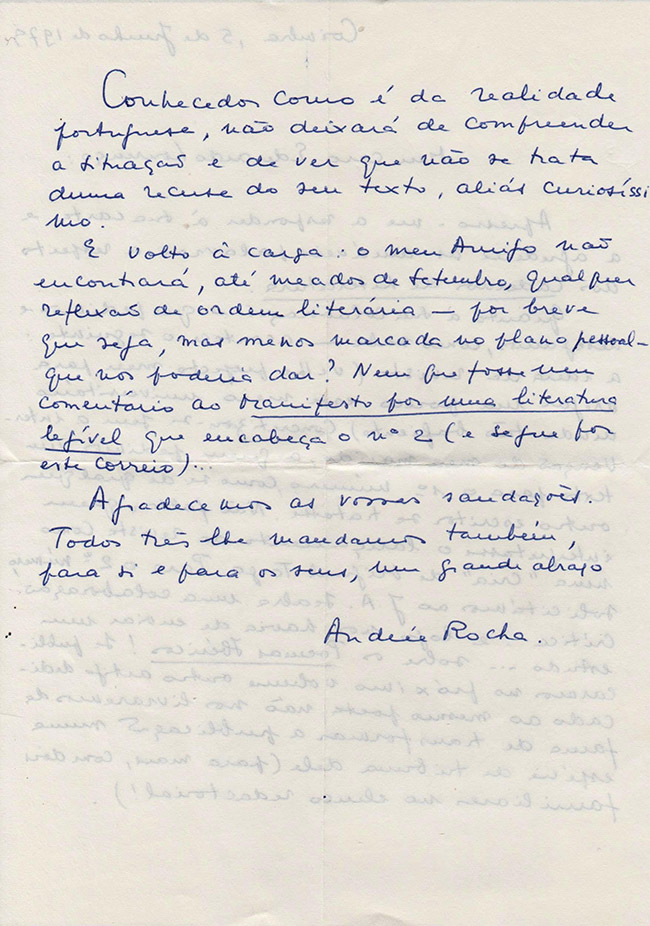 Conhecedor como é da realidade
portuguesa, não deixará de compreender
a situação e de ver que não se trata
duma recusa do seu texto, aliás curiosíssi
mo.
E volto à carga: o meu Amigo não
encontrará, até meados de Setembro, qualquer
reflexão de ordem literária — por breve
que seja, mas menos marcada no plano pessoal —
que nos poderia dar? Nem que fosse um
comentário ao Manifesto por uma literatura
legível que encabeça o nº 2 (e segue por
este correio)...
Agradecemos as vossas saudações.
Todos três lhe mandamos também,
para si e para os seus, um grande abraço
Andrée Rocha.